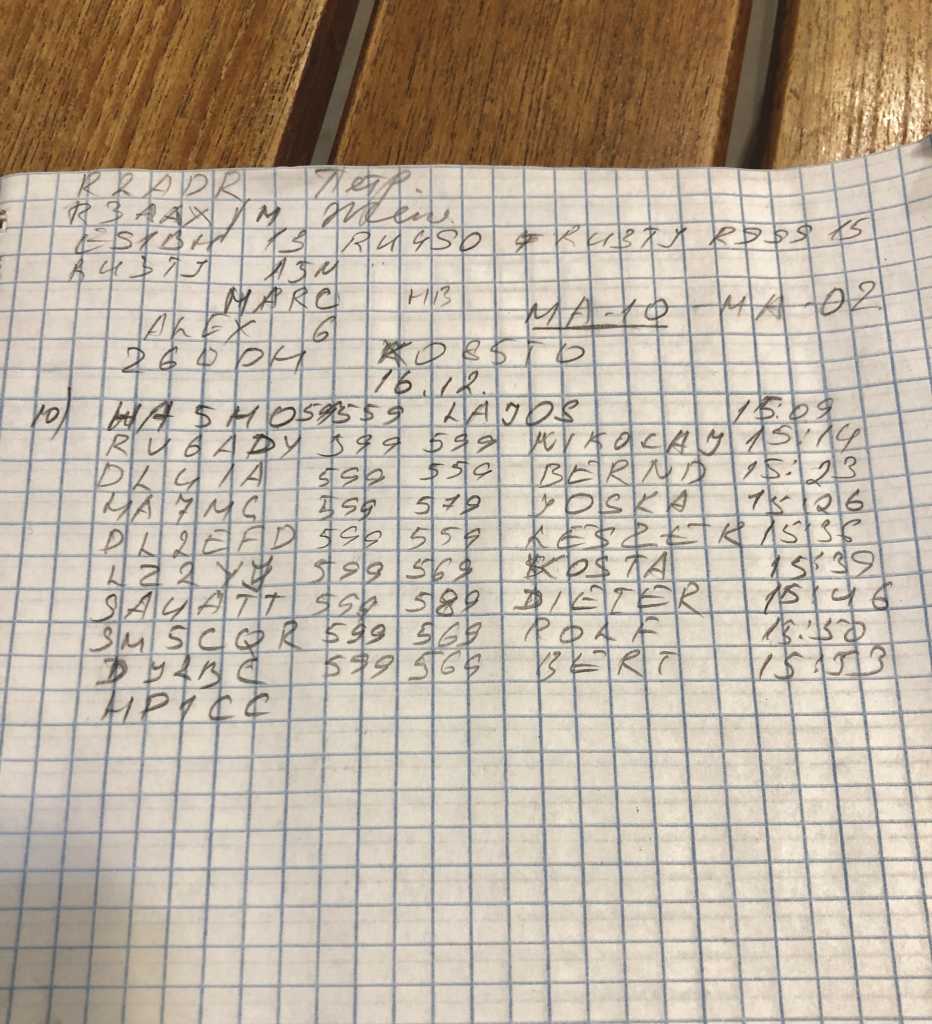 R2ADR Петр.
R3AAX/M Женя
ES1BH 13 RU4SO RU3TJ R999 15
RU3TJ 15M
MARC HB
MA-10 - MA-02
ALEX 6
260DH
16.12.
10) HA5HO 599 559 LAJOS 15:09
RV6ADY 599 599 NIKOLAY 15:14
DL4IA 599 559 BERND 15:23
HA7MG 599 579 JOSKA 15:26
DL2EFD 599 559 LESZEK 15:36
LZ2YJ 599 569 KOSTA 15:39
SA4ATT 599 589 DIETER 15:46
SM5CQR 599 569 ROLF 15:50
DJ2BC 599 569 BERT 15:53
HP1CC